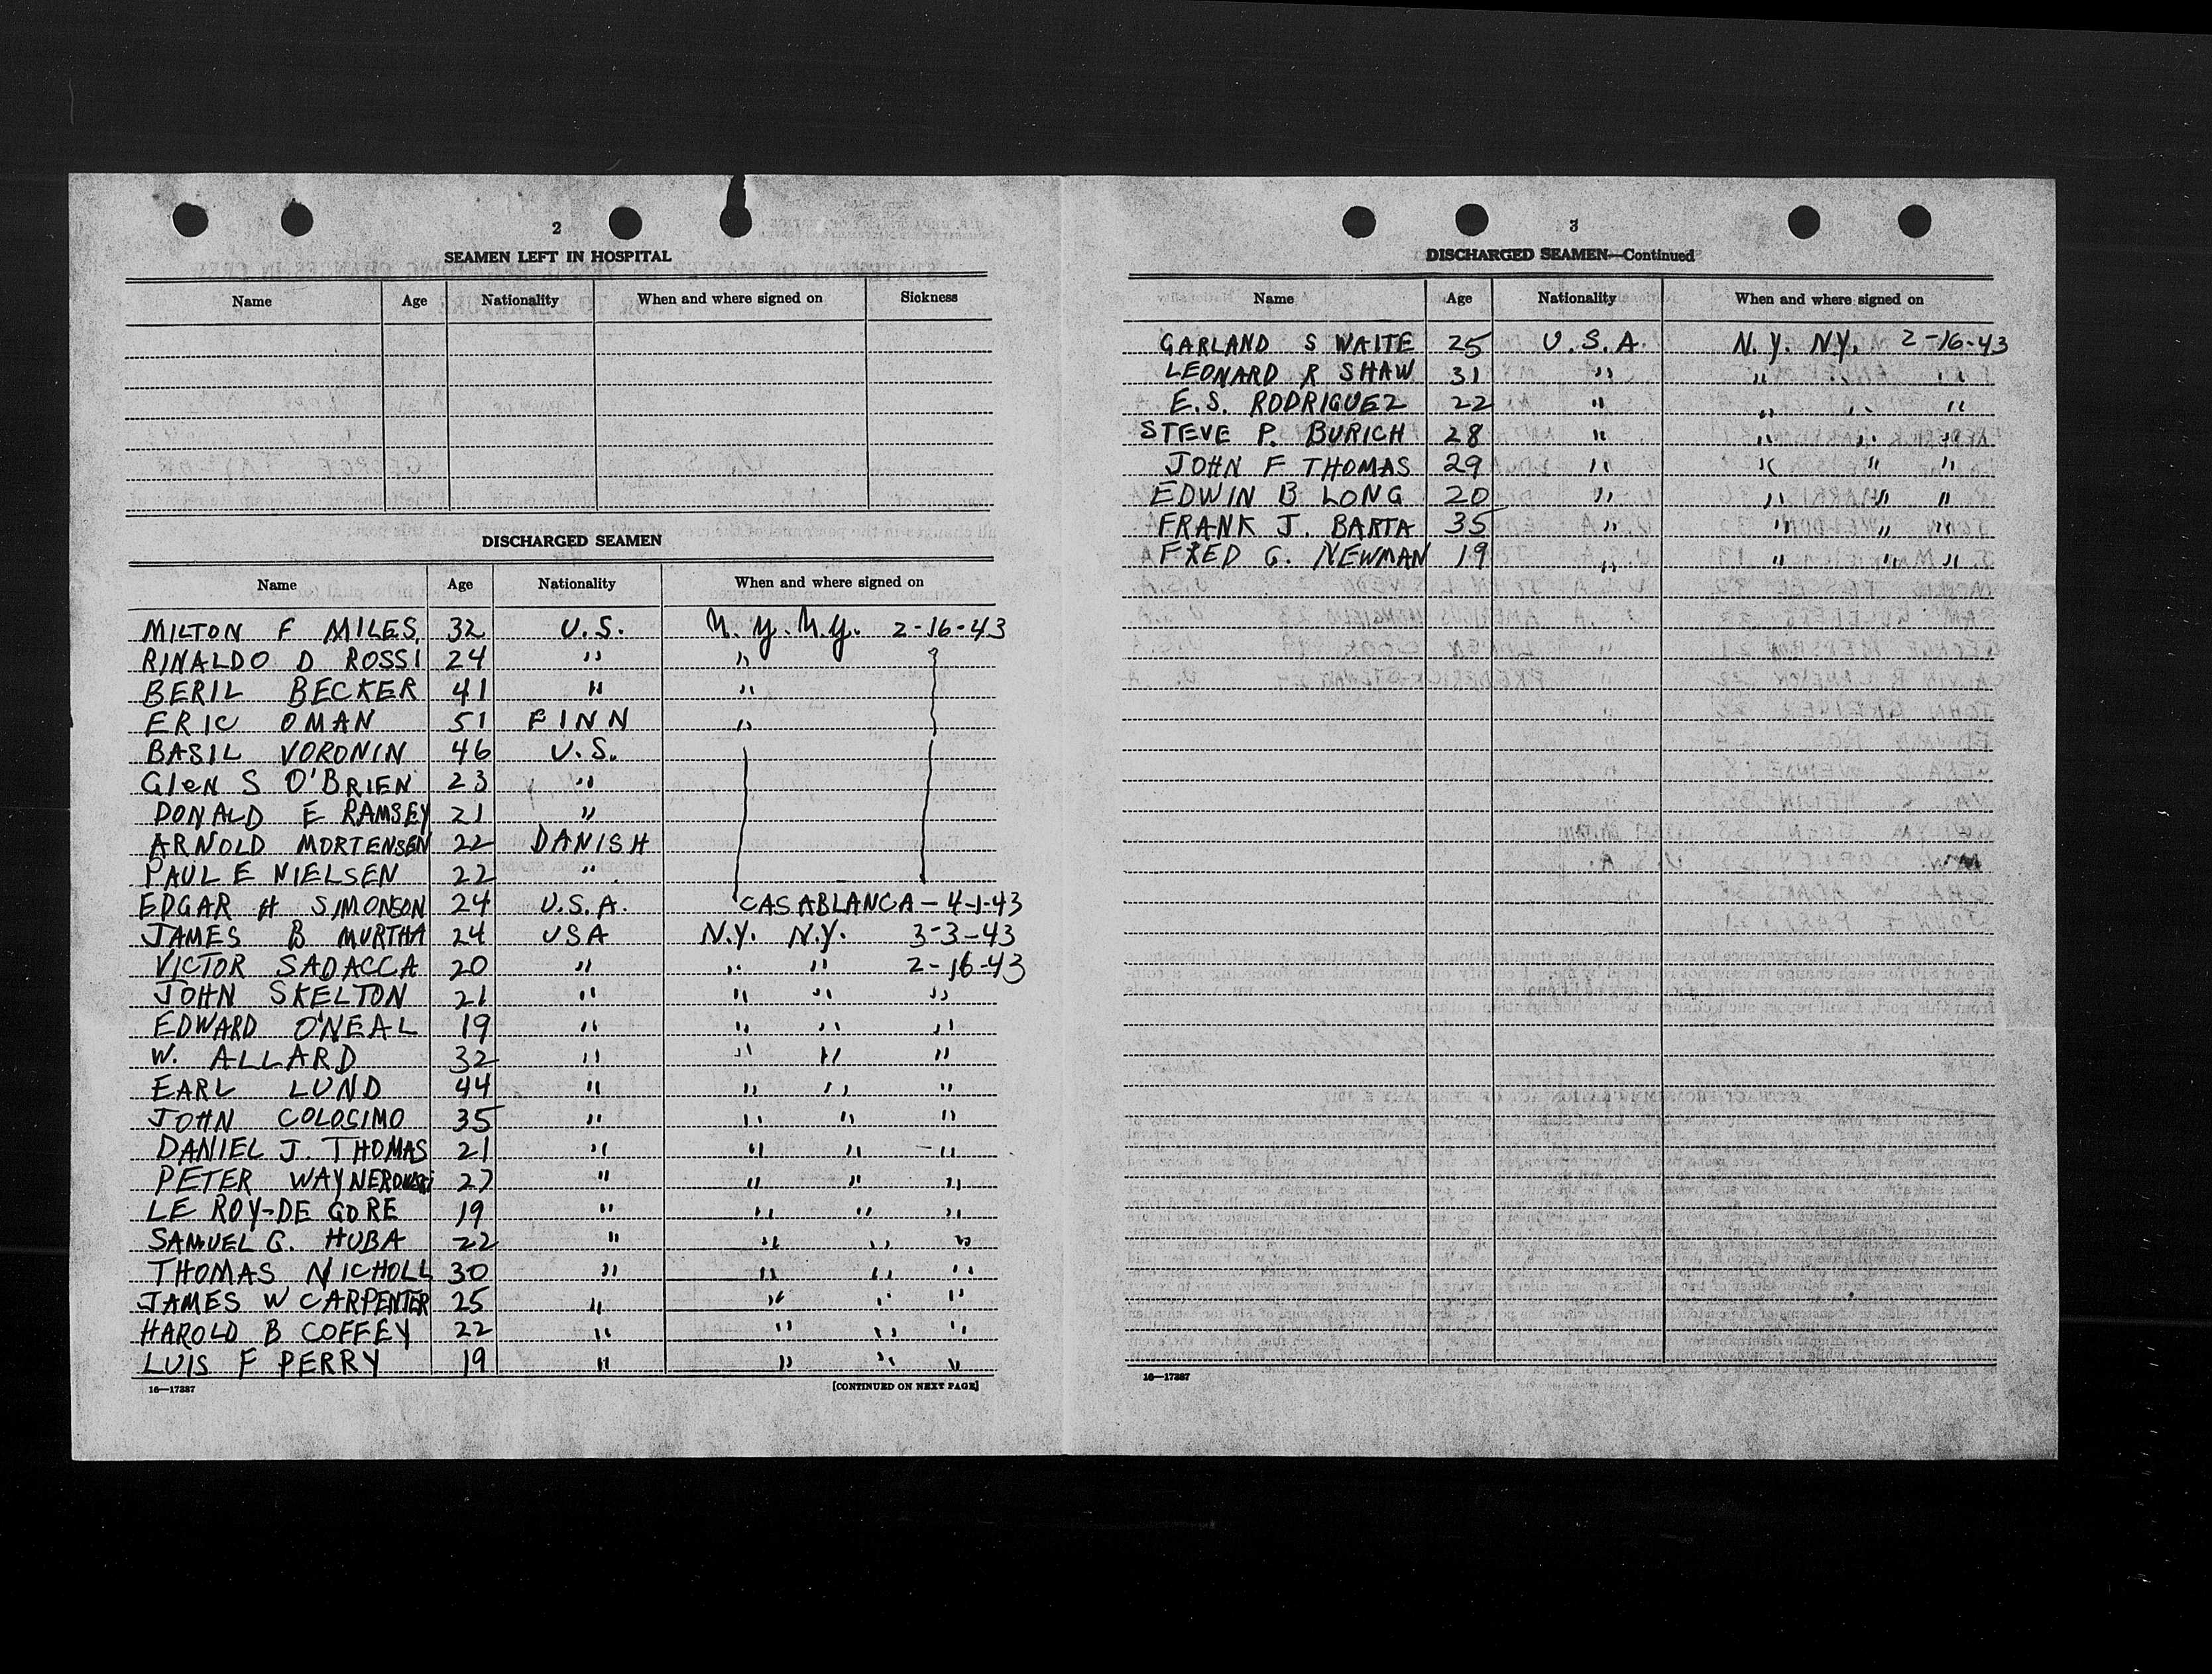 2
SEAMEN LEFT IN HOSPITAL
Name Age Nationality When and where signed on Sickness
DISCHARGED SEAMEN
Name Age Nationality When and where signed on
MILTON F MILES. 32 U.S. N.Y. N.Y. 2-16-43
RINALDO D ROSSI 24 " "
BERIL BECKER 41 " "
ERIC OMAN 51 FINN "
BASIL VORONIN 46 U.S.
GleN S O'BRIEN 23 "
DONALD E RAMSEY 21 "
ARNOLD MORTENSEN 22 DANISH
PAUL E NIELSEN 22 "
EDGAR H SIMONSON 24 U.S.A. CASABLANCA - 4-1-43
JAMES B MURTHA 24 USA N.Y. N.Y. 3-3-43
VICTOR SADACCA 20 " " " 2-16-43
JOHN SKELTON 21 " " " "
EDWARD O'NEAL 19 " " " "
W. ALLARD 32 " " " "
EARL LUND 44 " " " "
JOHN COLOSIMO 35 " " " "
DANIEL J. THOMAS 21 " " " "
PETER 27 " " " "
LE ROY-DE GORE 19 " " " "
SAMUEL G. HUBA 22 " " " "
THOMAS NICHOLL 30 " " " "
JAMES W CARPENTER 25 " " " "
HAROLD B COFFEY 22 " " " "
LUIS F PERRY 19 " " " "
16—17387 [CONTINUED ON NEXT PAGE]
3
DISCHARGED SEAMEN—Continued
Name Age Nationality When and where signed on
GARLAND S WAITE 25 U.S.A. N.Y. N.Y. 2-16-43
LEONARD R SHAW 31 " " " "
E.S. RODRIGUEZ 22 " " " "
STEVE P. BURICH 28 " " " "
JOHN F THOMAS 29 " " " "
EDWIN B LONG 20 " " " "
FRANK J. BARTA 35 " " " "
FRED G. NEWMAN 19 " " " "
16—17387